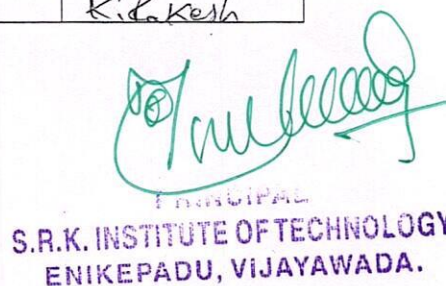 K. Rakesh
PRINCIPAL
S.R.K. INSTITUTE OF TECHNOLOGY
ENIKEPADU, VIJAYAWADA.